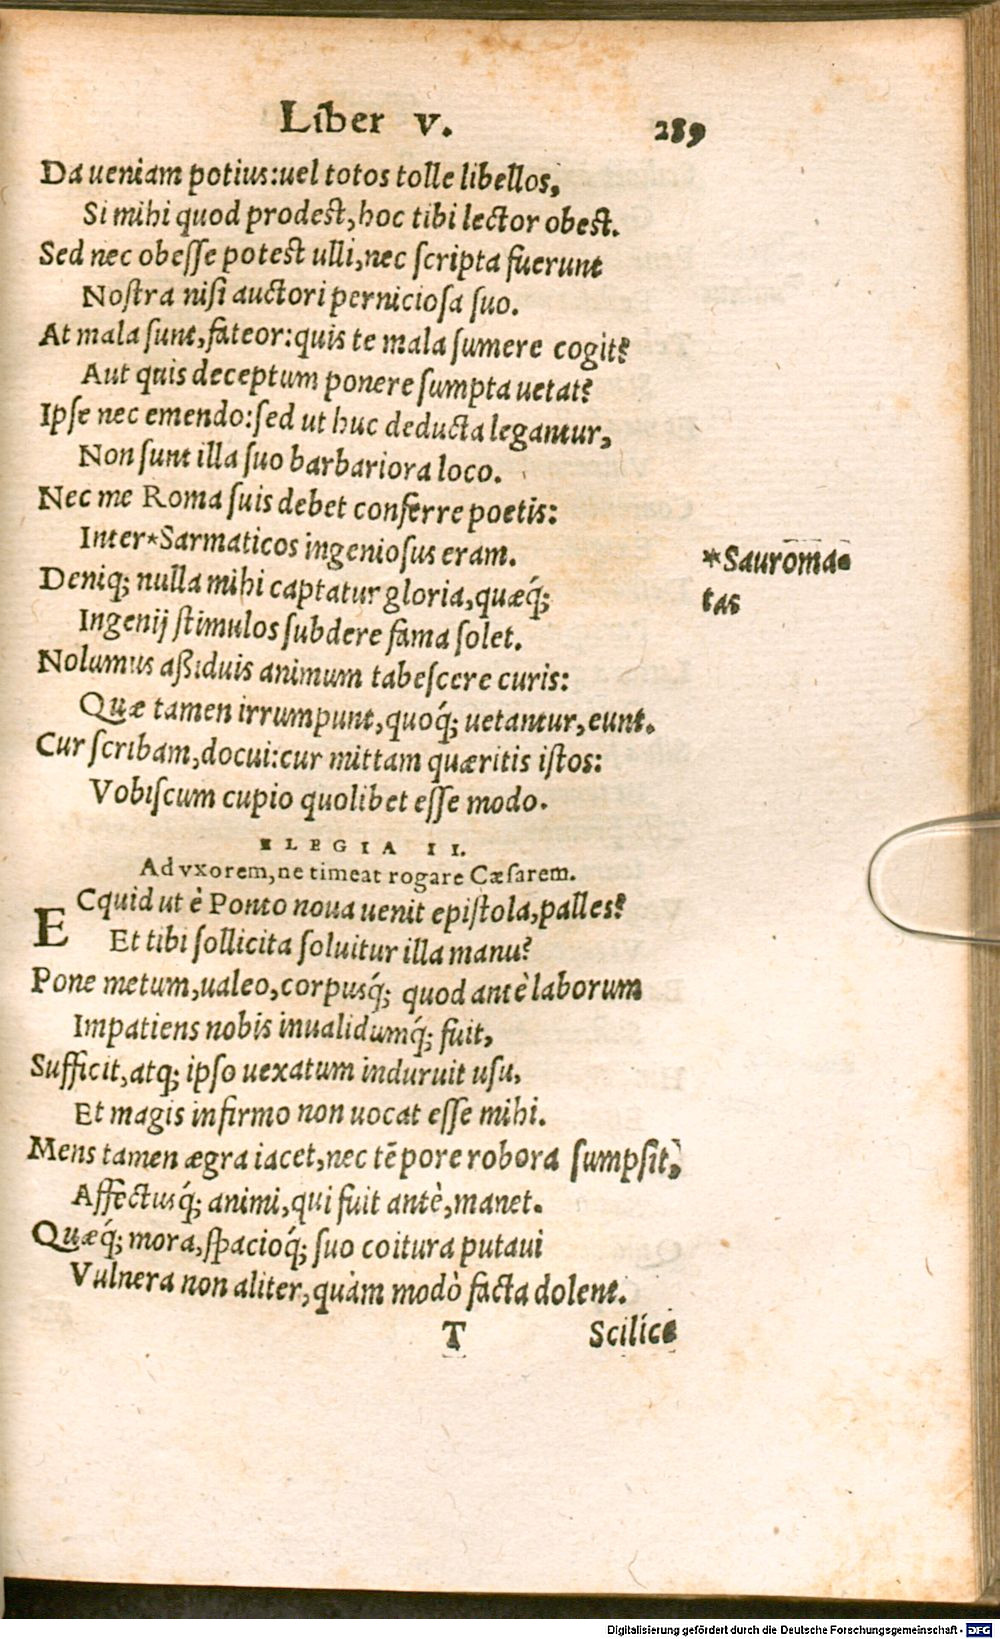 Liber V. 289
Da ueniam potius:uel totos tolle libellos,
Si mihi quod prodest,hoc tibi lector obest.
Sed nec obesſe potest ulli,nec ſcripta fuerunt
Noſtra niſi auctori pernicioſa ſuo.
At mala ſunt,fateor:quis te mala ſumere cogit?
Aut quis deceptum ponere ſumpta uetat?
Ipſe nec emendo:ſed ut huc deducta legantur,
Non ſunt illa ſuo barbariora loco.
Nec me Roma ſuis debet conferre poetis:
Inter*Sarmaticos ingenioſus eram.
*Sauroma-
tas
Deniq; nulla mihi captatur gloria,quæq́;
Ingenij ſtimulos ſubdere fama ſolet.
Nolumus aßiduis animum tabeſcere curis:
Quæ tamen irrumpunt,quoq́; uetantur,eunt.
Cur ſcribam,docui:cur mittam quæritis iſtos:
Vobiſcum cupio quolibet eſſe modo.
ELEGIA II.
Ad vxorem,ne timeat rogare Cæſarem.
ECquid ut è Ponto noua uenit epiſtola,palles?
Et tibi ſollicita ſoluitur illa manu?
Pone metum,ualeo,corpusq́; quod antè laborum
Impatiens nobis inualidumq́; fuit,
Sufficit,atq; ipſo uexatum induruit uſu,
Et magis infirmo non uocat eſſe mihi.
Mens tamen ægra iacet,nec tēpore robora ſumpſit,
Affectusq́; animi,qui fuit antè,manet.
Quæq́; mora,ſpacioq́; ſuo coitura putaui
Vulnera non aliter,quàm modò facta dolent.
T Scilice
Digitalisierung gefördert durch die Deutsche Forschungsgemeinschaft - DFG